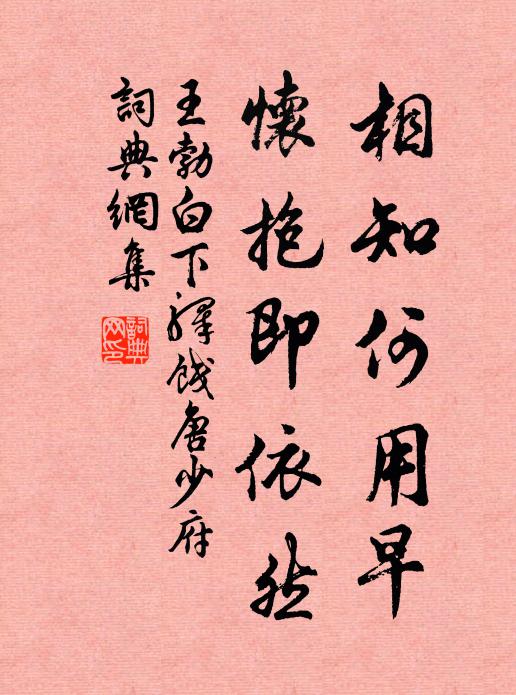 相知何用早
懷抱即依然
王勃白下驛餞唐少府
詞典網集
詞典網印